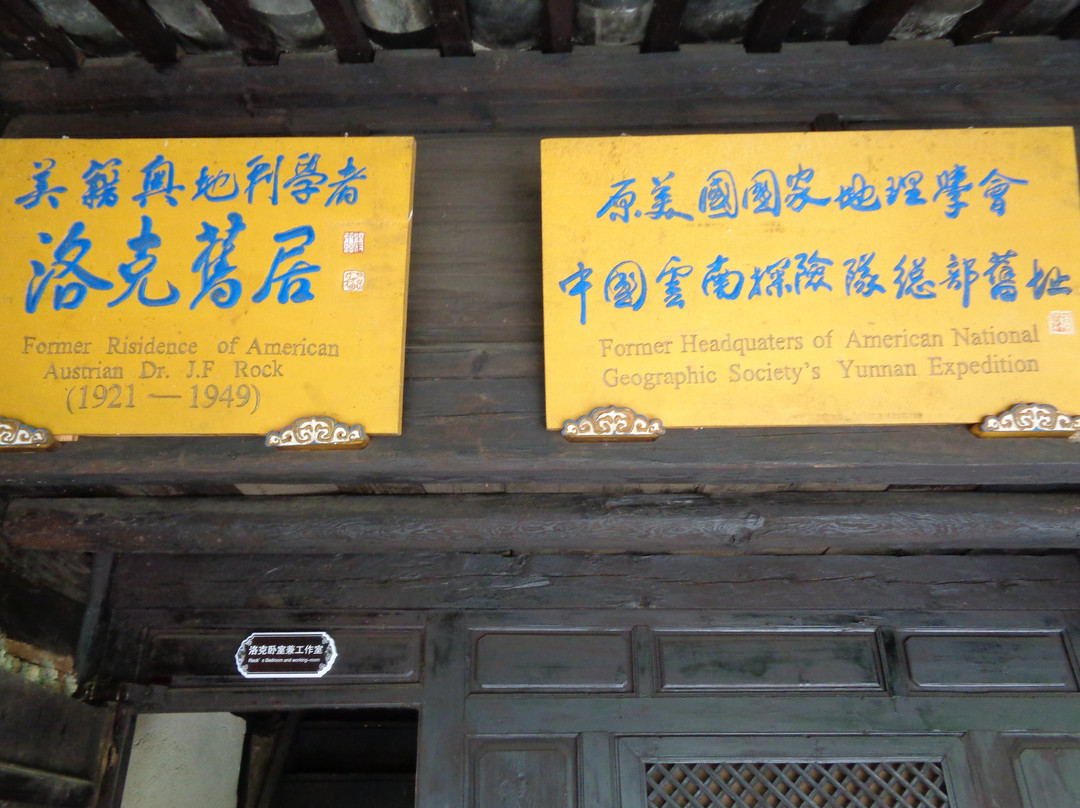 美籍奥地利學者
洛克舊居
Former Risidence of American
Austrian Dr. J.F Rock
(1921 — 1949)
原美國國家地理學會
中國雲南探險隊總部舊址
Former Headquaters of American National
Geographic Society's Yunnan Expedition
洛克卧室兼工作室
Rock's Bedroom and working-room